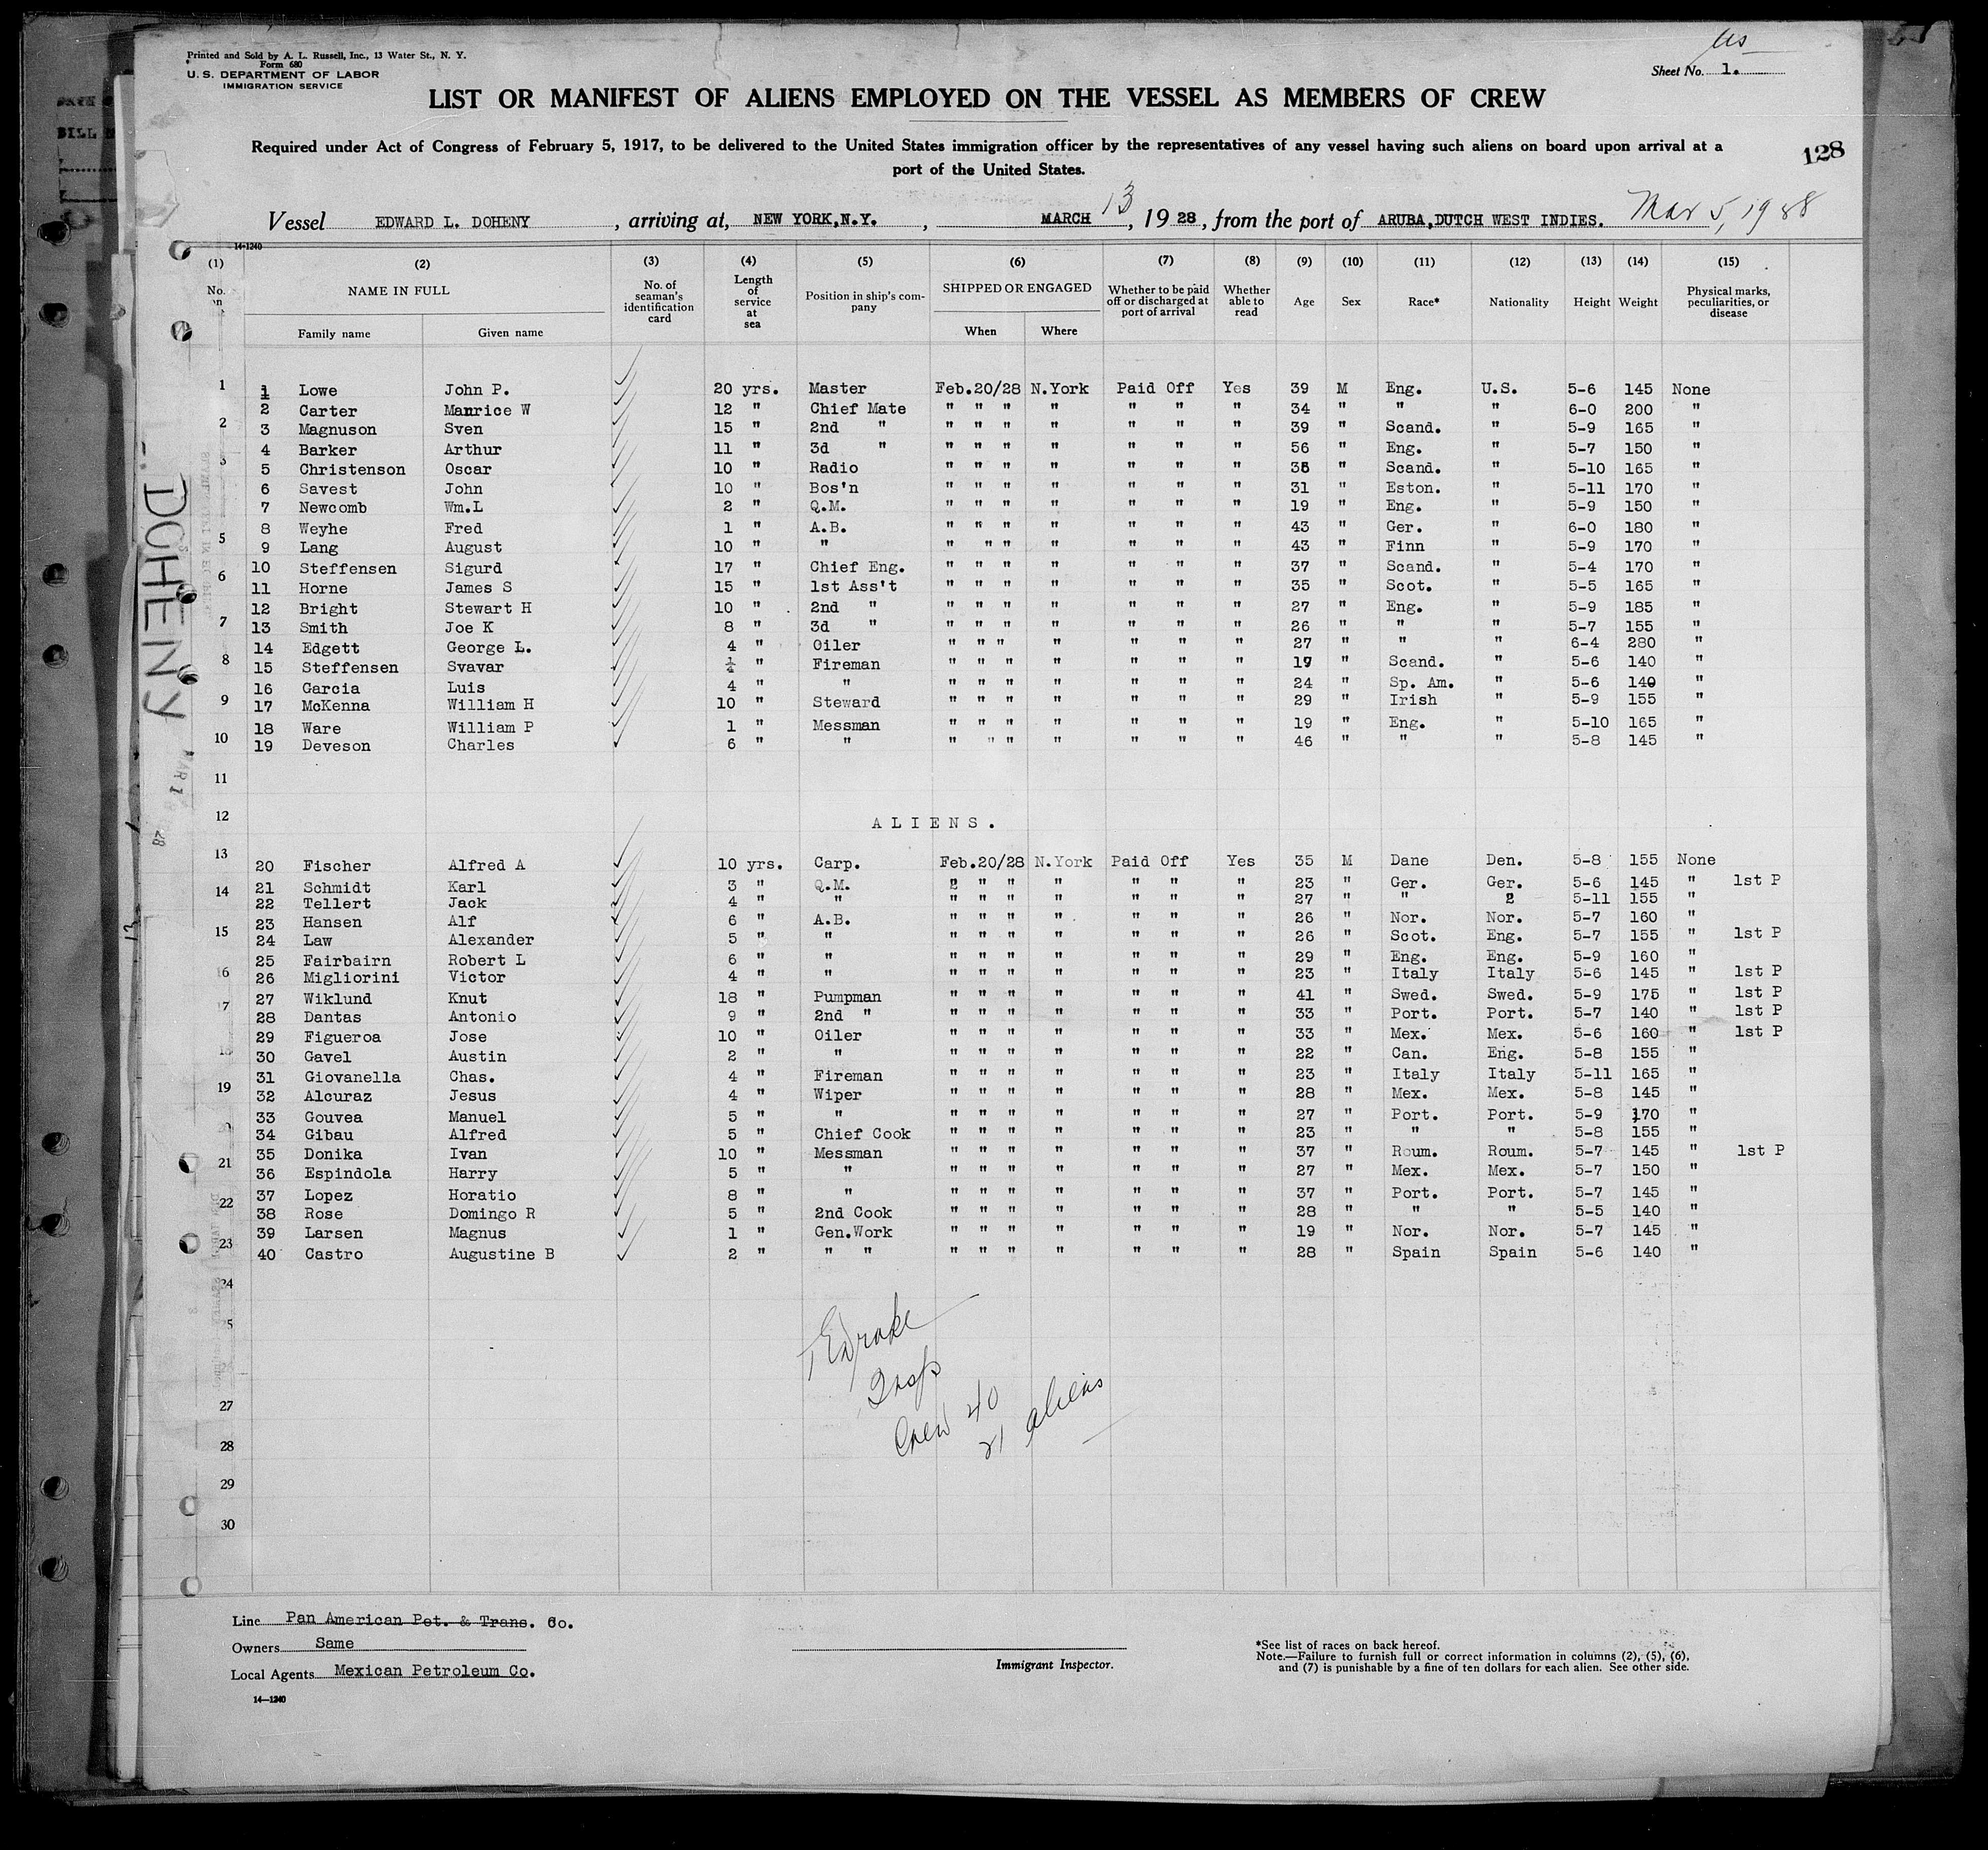 Printed and Sold by A. L. Russell, Inc., 13 Water St., N. Y.
Form 680
U. S. DEPARTMENT OF LABOR
IMMIGRATION SERVICE
Sheet No. 1.
LIST OR MANIFEST OF ALIENS EMPLOYED ON THE VESSEL AS MEMBERS OF CREW
Required under Act of Congress of February 5, 1917, to be delivered to the United States immigration officer by the representatives of any vessel having such aliens on board upon arrival at a
port of the United States.
128
Vessel EDWARD L. DOHENY, arriving at, NEW YORK,N.Y., MARCH 13, 1928, from the port of ARUBA,DUTCH WEST INDIES. Mar 5, 1928
14-1240
(1) (2) (3) (4) (5) (6) (7) (8) (9) (10) (11) (12) (13) (14) (15)
No. on NAME IN FULL Family name Given name No. of seaman's identification card Length of service at sea Position in ship's company SHIPPED OR ENGAGED When Where Whether to be paid off or discharged at port of arrival Whether able to read Age Sex Race* Nationality Height Weight Physical marks, peculiarities, or disease
1 Lowe John P. 20 yrs. Master Feb.20/28 N.York Paid Off Yes 39 M Eng. U.S. 5-6 145 None
2 Carter Maurice W 12 " Chief Mate " " " " " " " 34 " " " 6-0 200 "
3 Magnuson Sven 15 " 2nd " " " " " " " " 39 " Scand. " 5-9 165 "
4 Barker Arthur 11 " 3d " " " " " " " " 56 " Eng. " 5-7 150 "
5 Christenson Oscar 10 " Radio " " " " " " " " Scand. " 5-10 165 "
6 Savest John 10 " Bos'n " " " " " " " 31 " Eston. " 5-11 170 "
7 Newcomb Wm.L 2 " Q.M. " " " " " " " 19 " Eng. " 5-9 150 "
8 Weyhe Fred 1 " A.B. " " " " " " " 43 " Ger. " 6-0 180 "
9 Lang August 10 " " " " " " " " " 43 " Finn " 5-9 170 "
10 Steffensen Sigurd 17 " Chief Eng. " " " " " " " 37 " Scand. " 5-4 170 "
11 Horne James S 15 " 1st Ass't " " " " " " " 35 " Scot. " 5-5 165 "
12 Bright Stewart H 10 " 2nd " " " " " " " " 27 " Eng. " 5-9 185 "
13 Smith Joe K 8 " 3d " " " " " " " " 26 " " " 5-7 155 "
14 Edgett George L. 4 " Oiler " " " " " " " 27 " " " 6-4 280 "
15 Steffensen Svavar ¼ " Fireman " " " " " " " 19 " Scand. " 5-6 140 "
16 Garcia Luis 4 " " " " " " " " " 24 " Sp. Am. " 5-6 140 "
17 McKenna William H 10 " Steward " " " " " " " 29 " Irish " 5-9 155 "
18 Ware William P 1 " Messman " " " " " " " 19 " Eng. " 5-10 165 "
19 Deveson Charles 6 " " " " " " " " " 46 " " " 5-8 145 "
ALIENS.
20 Fischer Alfred A 10 yrs. Carp. Feb.20/28 N.York Paid Off Yes 35 M Dane Den. 5-8 155 None
21 Schmidt Karl 3 " Q.M. 2 " " " " " " 23 " Ger. Ger. 5-6 145 " 1st P
22 Tellert Jack 4 " " " " " " " " " 27 " " 2 5-11 155 "
23 Hansen Alf 6 " A.B. " " " " " " " 26 " Nor. Nor. 5-7 160 "
24 Law Alexander 5 " " " " " " " " " 26 " Scot. Eng. 5-7 155 " 1st P
25 Fairbairn Robert L 6 " " " " " " " " " 29 " Eng. Eng. 5-9 160 "
26 Migliorini Victor 4 " " " " " " " " " 23 " Italy Italy 5-6 145 " 1st P
27 Wiklund Knut 18 " Pumpman " " " " " " " 41 " Swed. Swed. 5-9 175 " 1st P
28 Dantas Antonio 9 " 2nd " " " " " " " " 33 " Port. Port. 5-7 140 " 1st P
29 Figueroa Jose 10 " Oiler " " " " " " " 33 " Mex. Mex. 5-6 160 " 1st P
30 Gavel Austin 2 " " " " " " " " " 22 " Can. Eng. 5-8 155 "
31 Giovanella Chas. 4 " Fireman " " " " " " " 23 " Italy Italy 5-11 165 "
32 Alcuraz Jesus 4 " Wiper " " " " " " " 28 " Mex. Mex. 5-8 145 "
33 Gouvea Manuel 5 " " " " " " " " " 27 " Port. Port. 5-9 170 "
34 Gibau Alfred 5 " Chief Cook " " " " " " " 23 " " " 5-8 155 "
35 Donika Ivan 10 " Messman " " " " " " " 37 " Roum. Roum. 5-7 145 " 1st P
36 Espindola Harry 5 " " " " " " " " " 27 " Mex. Mex. 5-7 150 "
37 Lopez Horatio 8 " " " " " " " " " 37 " Port. Port. 5-7 145 "
38 Rose Domingo R 5 " 2nd Cook " " " " " " " 28 " " " 5-5 140 "
39 Larsen Magnus 1 " Gen.Work " " " " " " " 19 " Nor. Nor. 5-7 145 "
40 Castro Augustine B 2 " " " " " " " " " " 28 " Spain Spain 5-6 140 "
Insp
Crew 40
21 aliens
Line Pan American Pet. & Trans. Co.
Owners Same
Local Agents Mexican Petroleum Co.
Immigrant Inspector.
*See list of races on back hereof.
Note.—Failure to furnish full or correct information in columns (2), (5), (6),
and (7) is punishable by a fine of ten dollars for each alien. See other side.
14—1240
L. DOHENY